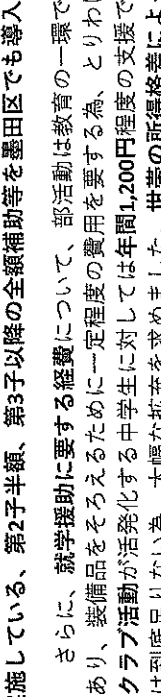 施している、第2子半額、第3子以降の全額補助等を墨田区でも導入
さらに、就学援助に要する経費について、部活動は教育の一環で
あり、装備品をそろえるために一定程度の費用を要する為、とりわ
クラブ活動が活発化する中学生に対しては年間1,200円程度の支援で
は到底足りない為、大幅な拡充を求めました。世帯の所得格差によ